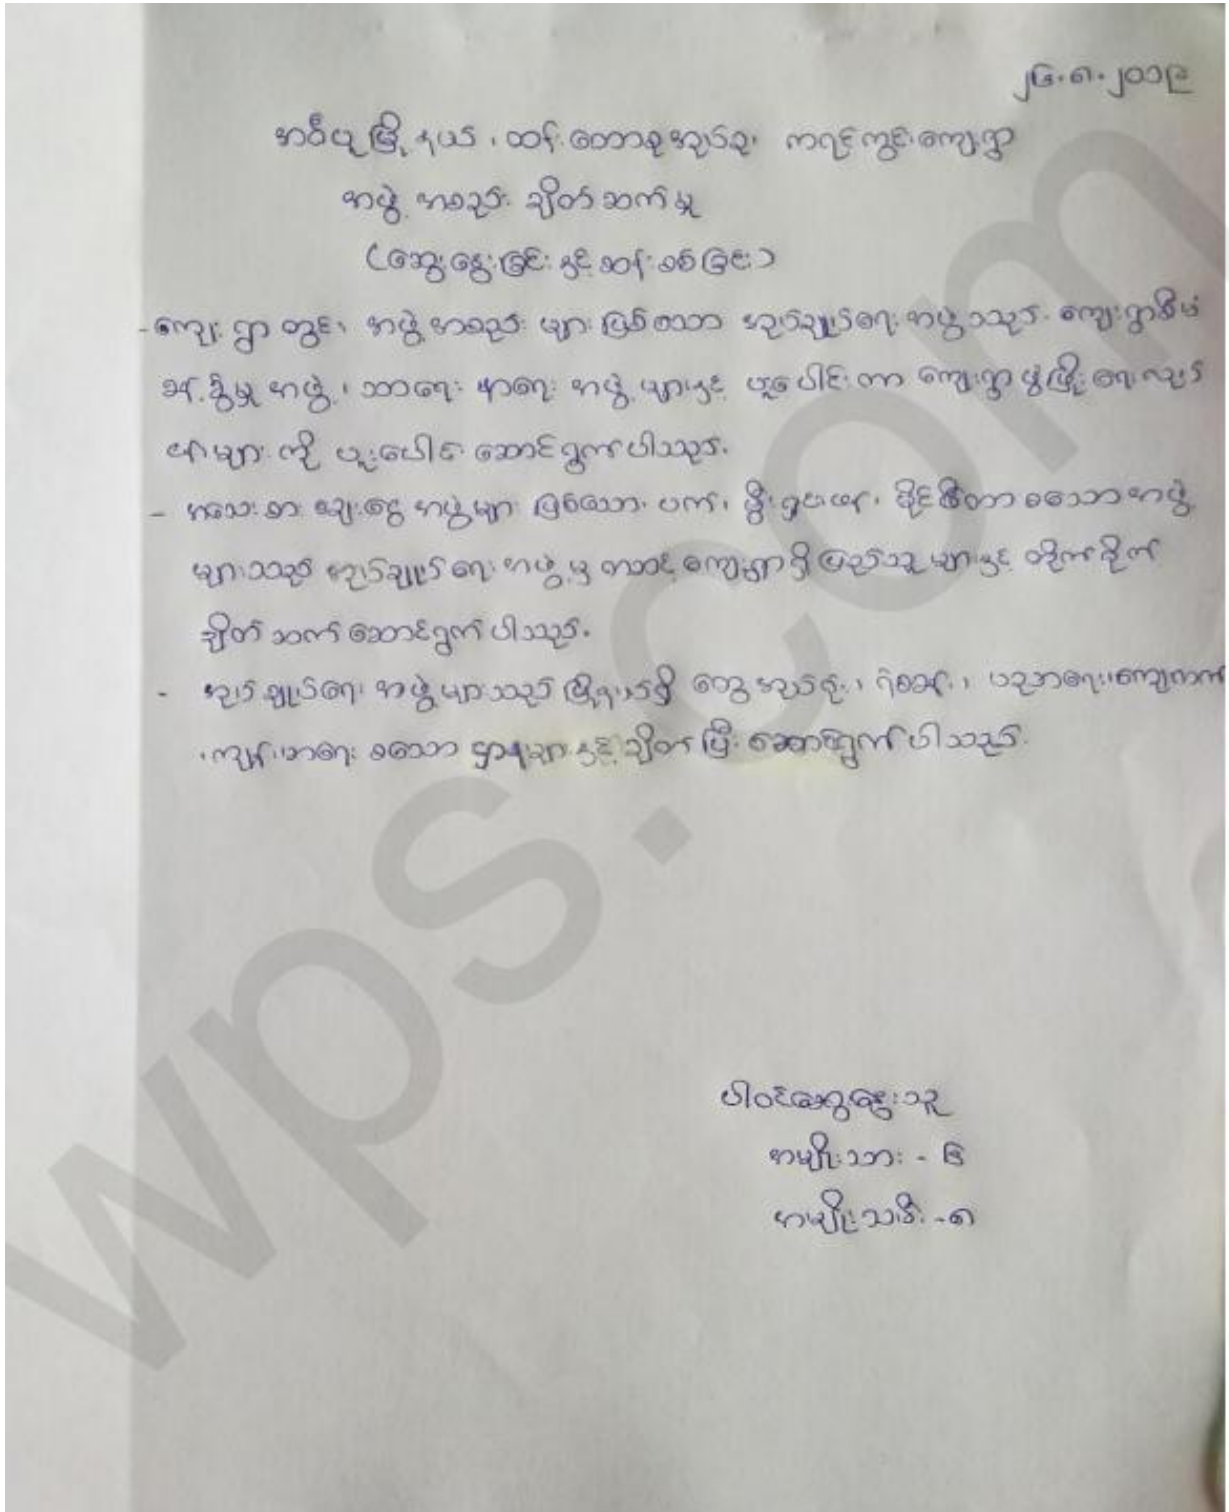 ၂၆.၈.၂၀၁၉
အင်္ပုမြို့နယ်၊ ထန်းတောစုအုပ်စု၊ ကရင်ကွင်းကျေးရွာ
အဖွဲ့အစည်းချိတ်ဆက်မှု
(ဆွေးနွေးခြင်းနှင့်ဆန်းစစ်ခြင်း)
-ကျေးရွာတွင်၊ အဖွဲ့အစည်းများဖြစ်သော အုပ်ချုပ်ရေးအဖွဲ့သည် ကျေးရွာစီမံ
ခန့်ခွဲမှုအဖွဲ့၊ သာရေးနာရေးအဖွဲ့များနှင့် ပူးပေါင်းကာ ကျေးရွာဖွံ့ဖြိုးရေးလုပ်
ငန်းများကို ပူးပေါင်းဆောင်ရွက်ပါသည်.
- အသေးစားချေးငွေအဖွဲ့များဖြစ်သော ပက်၊ စသောအဖွဲ့
များသည် အုပ်ချုပ်ရေးအဖွဲ့မှတဆင့် ကျေးရွာရှိပြည်သူများနှင့် တိုက်ရိုက်
ချိတ်ဆက်ဆောင်ရွက်ပါသည်.
- အုပ်ချုပ်ရေးအဖွဲ့များသည် မြို့နယ်ရှိ ထွေအုပ်ရုံး၊ ရဲစခန်း၊ ပညာရေး၊ကျေးလက်
၊ကျန်းမာရေး စသောဌာနများနှင့်ချိတ်ပြီး ဆောင်ရွက်ပါသည်.
ပါဝင်ဆွေးနွေးသူ
အမျိုးသား - ၆
အမျိုးသမီး - ၈
wps.com